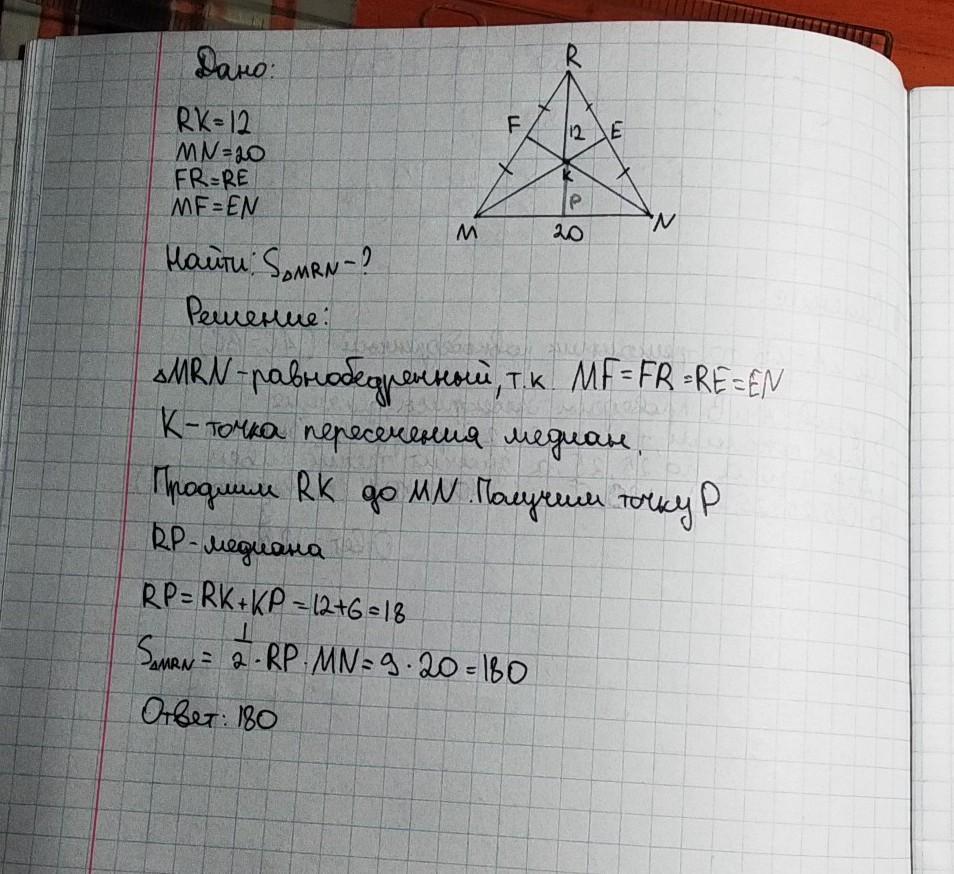 Дано:
RK=12
MN=20
FR=RE
MF=EN
Найти: S△MRN-?
R
F
12
E
K
P
M
20
N
Решение:
△MRN-равнобедренный, т.к. MF=FR=RE=EN
K-точка пересечения медиан.
Продлим RK до MN. Получим точку P
RP-медиана
RP=RK+KP=12+6=18
S△MRN = 1/2 · RP · MN = 9 · 20 = 180
Ответ: 180